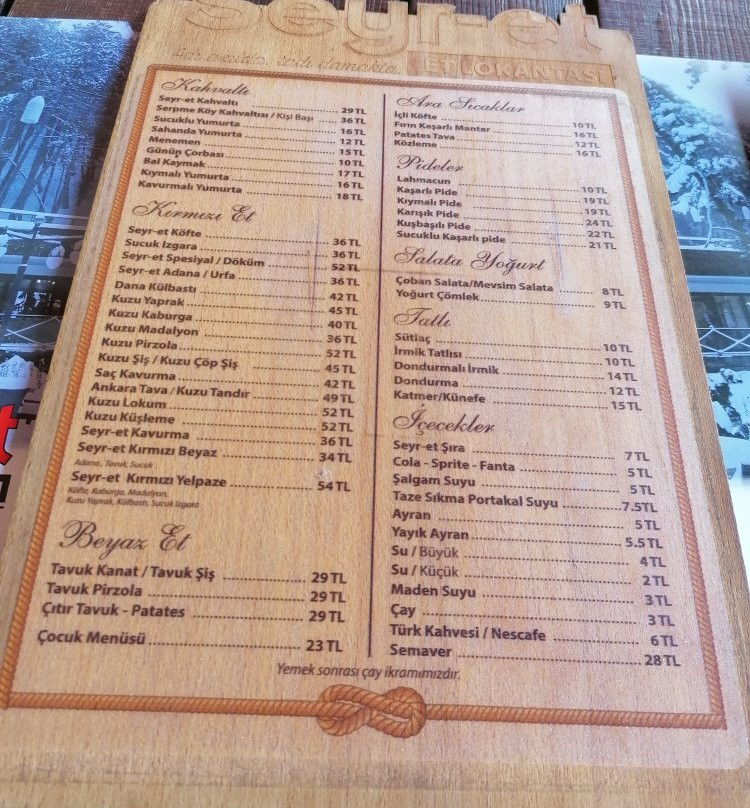 seyr-et
ET LOKANTASI
Kahvaltı
Seyr-et Kahvaltı 29 TL
Serpme Köy Kahvaltısı / Kişi Başı 36 TL
Sucuklu Yumurta 16 TL
Sahanda Yumurta 12 TL
Menemen 15 TL
Günün Çorbası 10 TL
Bal Kaymak 17 TL
Kıymalı Yumurta 16 TL
Kavurmalı Yumurta 18 TL
Kırmızı Et
Seyr-et Köfte 36 TL
Sucuk Izgara 36 TL
Seyr-et Spesiyal / Döküm 52 TL
Seyr-et Adana / Urfa 36 TL
Dana Külbastı 42 TL
Kuzu Yaprak 45 TL
Kuzu Kaburga 40 TL
Kuzu Madalyon 36 TL
Kuzu Pirzola 52 TL
Kuzu Şiş / Kuzu Çöp Şiş 45 TL
Saç Kavurma 42 TL
Ankara Tava / Kuzu Tandır 49 TL
Kuzu Lokum 52 TL
Kuzu Küşleme 52 TL
Seyr-et Kavurma 36 TL
Seyr-et Kırmızı Beyaz 34 TL
Adana, Tavuk, Sucuk
Seyr-et Kırmızı Yelpaze 54 TL
Köfte, Kaburga, Madalyon,
Kuzu Yaprak, Külbastı, Sucuk Izgara
Beyaz Et
Tavuk Kanat / Tavuk Şiş 29 TL
Tavuk Pirzola 29 TL
Çıtır Tavuk - Patates 29 TL
Çocuk Menüsü 23 TL
Ara Sıcaklar
İçli Köfte 10 TL
Fırın Kaşarlı Mantar 16 TL
Patates Tava 12 TL
Közleme 16 TL
Pideler
Lahmacun 10 TL
Kaşarlı Pide 19 TL
Kıymalı Pide 19 TL
Karışık Pide 24 TL
Kuşbaşılı Pide 22 TL
Sucuklu Kaşarlı pide 21 TL
Salata Yoğurt
Çoban Salata/Mevsim Salata 8 TL
Yoğurt Çömlek 9 TL
Tatlı
Sütlaç 10 TL
İrmik Tatlısı 10 TL
Dondurmalı İrmik 14 TL
Dondurma 12 TL
Katmer/Künefe 15 TL
İçecekler
Seyr-et Şıra 7 TL
Cola - Sprite - Fanta 5 TL
Şalgam Suyu 5 TL
Taze Sıkma Portakal Suyu 7.5 TL
Ayran 5 TL
Yayık Ayran 5.5 TL
Su / Büyük 4 TL
Su / Küçük 2 TL
Maden Suyu 3 TL
Çay 3 TL
Türk Kahvesi / Nescafe 6 TL
Semaver 28 TL
Yemek sonrası çay ikramımızdır.